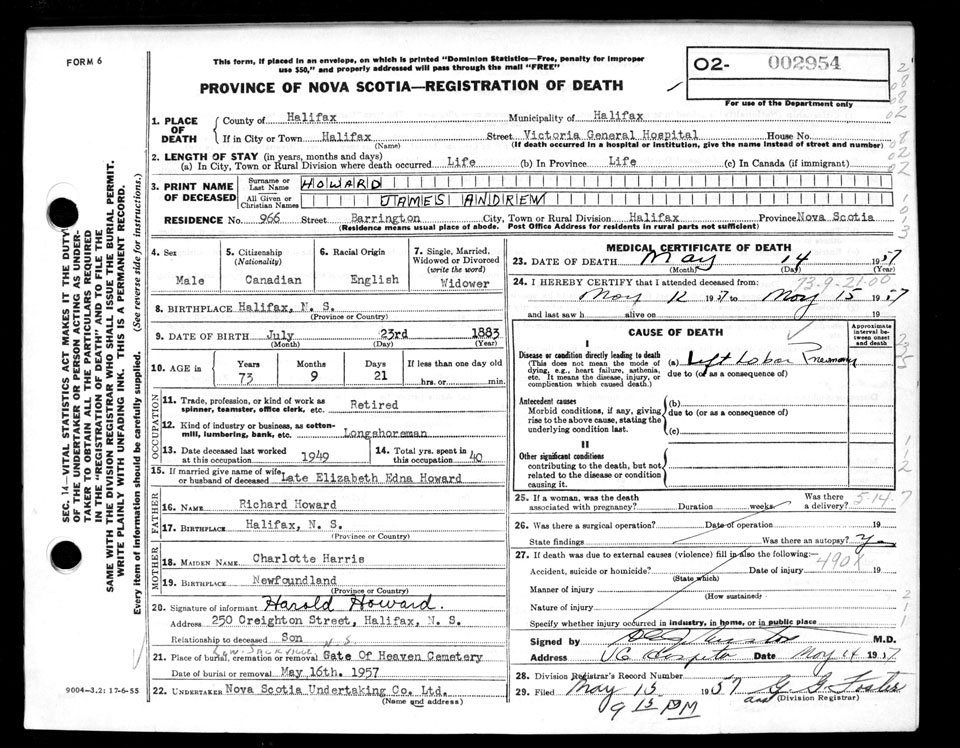 FORM 6
This form, if placed in an envelope, on which is printed "Dominion Statistics—Free, penalty for improper
use $50," and properly addressed will pass through the mail "FREE"
PROVINCE OF NOVA SCOTIA—REGISTRATION OF DEATH
O2- 002954
For use of the Department only
1. PLACE OF DEATH
County of Halifax Municipality of Halifax
If in City or Town Halifax Street Victoria General Hospital House No.
(Name) (If death occurred in a hospital or institution, give the name instead of street and number)
2. LENGTH OF STAY (in years, months and days)
(a) In City, Town or Rural Division where death occurred Life (b) In Province Life (c) In Canada (if immigrant)
3. PRINT NAME OF DECEASED
Surname or Last Name HOWARD
All Given or Christian Names JAMES ANDREW
RESIDENCE No. 966 Street Barrington City, Town or Rural Division Halifax Province Nova Scotia
(Residence means usual place of abode. Post Office Address for residents in rural parts not sufficient)
4. Sex
Male
5. Citizenship
(Nationality)
Canadian
6. Racial Origin
English
7. Single, Married,
Widowed or Divorced
(write the word)
Widower
8. BIRTHPLACE Halifax, N. S.
(Province or Country)
9. DATE OF BIRTH July 23rd 1883
(Month) (Day) (Year)
10. AGE in
Years Months Days If less than one day old
73 9 21 hrs. or min.
OCCUPATION
11. Trade, profession, or kind of work as
spinner, teamster, office clerk, etc. Retired
12. Kind of industry or business, as cotton-
mill, lumbering, bank, etc. Longshoreman
13. Date deceased last worked
at this occupation 1949
14. Total yrs. spent in
this occupation 40
15. If married give name of wife
or husband of deceased Late Elizabeth Edna Howard
FATHER
16. NAME Richard Howard
17. BIRTHPLACE Halifax, N. S.
(Province or Country)
MOTHER
18. MAIDEN NAME Charlotte Harris
19. BIRTHPLACE Newfoundland
(Province or Country)
20. Signature of informant Harold Howard.
Address 250 Creighton Street, Halifax, N. S.
Relationship to deceased Son
Low. SACKVILLE, N.S.
21. Place of burial, cremation or removal Gate Of Heaven Cemetery
Date of burial or removal May 16th. 1957
22. UNDERTAKER Nova Scotia Undertaking Co. Ltd.
(Name and address)
9004—3.2: 17-6-55
MEDICAL CERTIFICATE OF DEATH
23. DATE OF DEATH May 14 1957
(Month) (Day) (Year)
73-9-21-00
24. I HEREBY CERTIFY that I attended deceased from:
May 12 1957 to May 15 1957
and last saw h alive on 19
CAUSE OF DEATH
Approximate
interval be-
tween onset
and death
I
Disease or condition directly leading to death
(This does not mean the mode of
dying, e.g., heart failure, asthenia,
etc. It means the disease, injury, or
complication which caused death.)
(a) Left Lobar Pneumonia
due to (or as a consequence of)
Antecedent causes
Morbid conditions, if any, giving
rise to the above cause, stating the
underlying condition last.
(b)
due to (or as a consequence of)
(c)
II
Other significant conditions
contributing to the death, but not
related to the disease or condition
causing it.
25. If a woman, was the death
associated with pregnancy? Duration weeks
Was there
a delivery?
5-14-7
26. Was there a surgical operation? Date of operation 19
State findings Was there an autopsy?
27. If death was due to external causes (violence) fill in also the following:
490X
Accident, suicide or homicide? Date of injury 19
(State which)
Manner of injury
(How sustained)
Nature of injury
Specify whether injury occurred in industry, in home, or in public place
Signed by M.D.
Address VG Hospital Date May 14 1957
28. Division Registrar's Record Number
29. Filed May 15 1957
(Division Registrar)
9 15 PM
SEC. 14—VITAL STATISTICS ACT MAKES IT THE DUTY
OF THE UNDERTAKER OR PERSON ACTING AS UNDER-
TAKER TO OBTAIN ALL THE PARTICULARS REQUIRED
IN THE "REGISTRATION OF DEATH" AND TO FILE THE
SAME WITH THE DIVISION REGISTRAR WHO SHALL ISSUE THE BURIAL PERMIT.
WRITE PLAINLY WITH UNFADING INK. THIS IS A PERMANENT RECORD.
Every item of information should be carefully supplied. (See reverse side for instructions.)